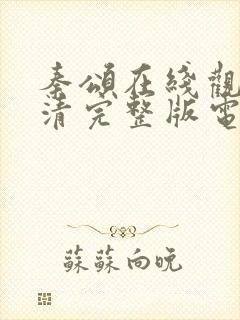 秦頌在綫觀
清完整版電
蘇蘇向晚